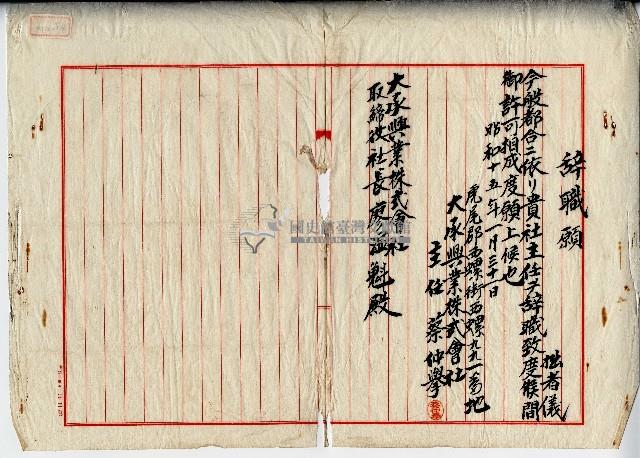 辞職願
拙者儀
今般都合ニ依リ貴社主任ヲ辞職致度候間
御許可相成度願上候也
昭和十五年一月三十日
虎尾郡西螺街西螺九九一番地
大承興業株式會社
主任 蔡仲擧
大承興業株式會社
取締役社長 廖 魁殿
國史館臺灣文獻館
TAIWAN HISTORICA